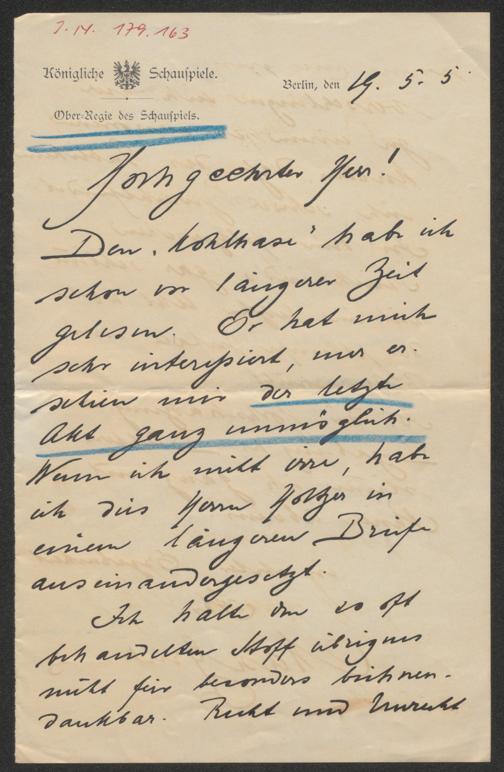 J.N. 179.163
Königliche Schauspiele.
Berlin, den 19. 5. 5
Ober-Regie des Schauspiels.
Hochgeehrter Herr!
Den „Kohlhase" habe ich
schon vor längerer Zeit
gelesen. Er hat mich
sehr interessiert, nur er-
schien mir der letzte
Akt ganz unmöglich.
Wenn ich nicht irre, habe
ich dies Herrn Holtzer in
einem längeren Briefe
auseinandergesetzt.
Ich halte den so oft
behandelten Stoff übrigens
nicht für besonders bühnen-
dankbar. Recht und Unrecht